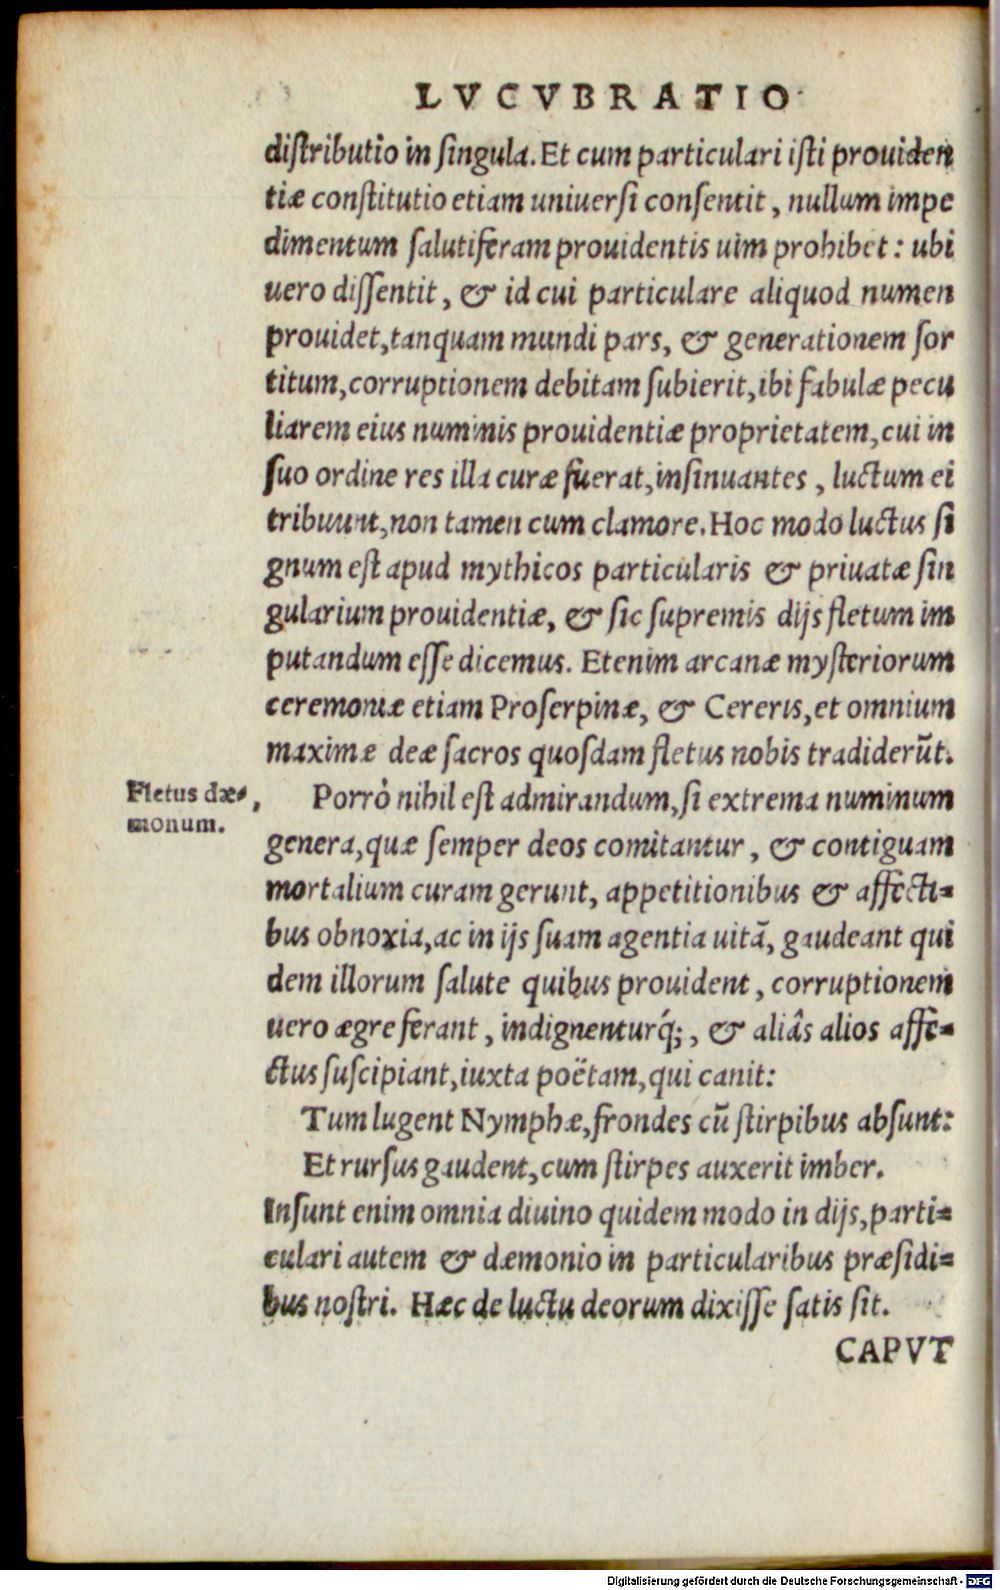 LVCVBRATIO
diſtributio in ſingula. Et cum particulari iſti prouiden
tiæ conſtitutio etiam uniuerſi conſentit, nullum impe
dimentum ſalutiferam prouidentis uim prohibet: ubi
uero diſſentit, & id cui particulare aliquod numen
prouidet, tanquam mundi pars, & generationem ſor
titum, corruptionem debitam ſubierit, ibi fabulæ pecu
liarem eius numinis prouidentiæ proprietatem, cui in
ſuo ordine res illa curæ fuerat, inſinuantes, luctum ei
tribuunt, non tamen cum clamore. Hoc modo luctus ſi
gnum eſt apud mythicos particularis & priuatæ ſin
gularium prouidentiæ, & ſic ſupremis dijs fletum im
putandum eſſe dicemus. Etenim arcanæ myſteriorum
ceremoniæ etiam Proſerpinæ, & Cereris, et omnium
maximæ deæ ſacros quoſdam fletus nobis tradiderūt.
Fletus dæ-
monum.
Porrò nihil eſt admirandum, ſi extrema numinum
genera, quæ ſemper deos comitantur, & contiguam
mortalium curam gerunt, appetitionibus & affecti-
bus obnoxia, ac in ijs ſuam agentia uitā, gaudeant qui
dem illorum ſalute quibus prouident, corruptionem
uero ægre ferant, indignenturq́;, & aliâs alios affe-
ctus ſuſcipiant, iuxta poëtam, qui canit:
Tum lugent Nymphæ, frondes cū ſtirpibus abſunt:
Et rurſus gaudent, cum ſtirpes auxerit imber.
Inſunt enim omnia diuino quidem modo in dijs, parti-
culari autem & dæmonio in particularibus præſidi-
bus noſtri. Hæc de luctu deorum dixiſſe ſatis ſit.
CAPVT
Digitalisierung gefördert durch die Deutsche Forschungsgemeinschaft - DFG